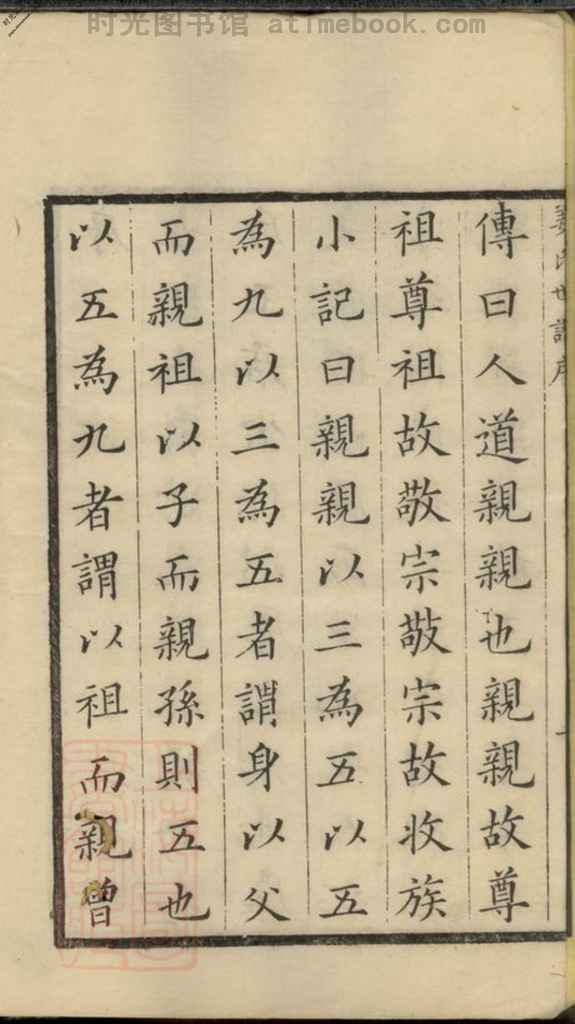 时光图书馆 atimebook.com
姜氏世譜序
一
傳曰人道親親也親親故尊
祖尊祖故敬宗敬宗故收族
小記曰親親以三為五以五
為九以三為五者謂身以父
而親祖以子而親孫則五也
以五為九者謂以祖而親曽